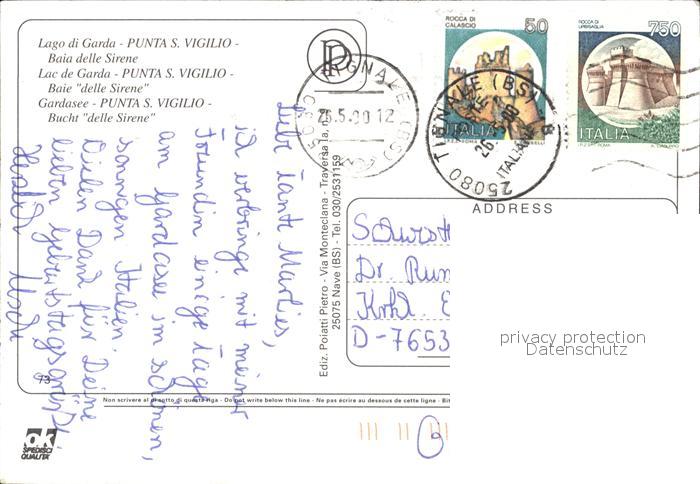 Lago di Garda - PUNTA S. VIGILIO -
Baia delle Sirene
Lac de Garda - PUNTA S. VIGILIO -
Baie "delle Sirene"
Gardasee - PUNTA S. VIGILIO -
Bucht "delle Sirene"
ROCCA DI
CALASCIO
50
ITALIA
ROCCA DI
URBISAGLIA
750
ITALIA
26.5.90 12
25080 TIGNALE (BS)
ITALIA
Liebe Tante Marlies,
ich verbringe mit meiner
Freundin einige Tage
am Gardasee im schönen,
sonnigen Italien.
Vielen Dank für Deine
lieben Geburtstagsgrüße.
Herzlich
Ediz. Poiatti Pietro - Via Monteclana - Traversa Ia, n.
25075 Nave (BS) - Tel. 030/2531159
ADDRESS
Dr. Rum
Kohl
D-7653
privacy protection
Datenschutz
73
Non scrivere al di sotto di questa riga - Do not write below this line - Ne pas écrire au dessous de cette ligne - Bit
ok
SPEDISCI
QUALITA'